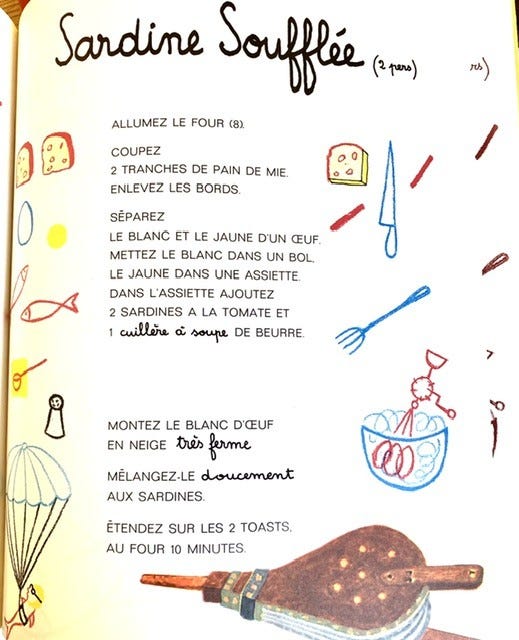 Sardine Soufflée (2 pers)
rs)
ALLUMEZ LE FOUR (8).
COUPEZ
2 TRANCHES DE PAIN DE MIE.
ENLEVEZ LES BORDS.
SÉPAREZ
LE BLANC ET LE JAUNE D'UN ŒUF.
METTEZ LE BLANC DANS UN BOL,
LE JAUNE DANS UNE ASSIETTE.
DANS L'ASSIETTE AJOUTEZ
2 SARDINES A LA TOMATE ET
1 cuillère à soupe DE BEURRE.
MONTEZ LE BLANC D'ŒUF
EN NEIGE très ferme
MÉLANGEZ-LE doucement
AUX SARDINES.
ÉTENDEZ SUR LES 2 TOASTS.
AU FOUR 10 MINUTES.